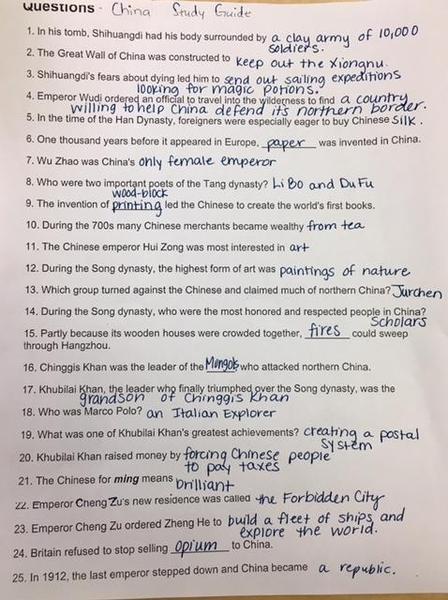 Questions - China Study Guide
1. In his tomb, Shihuangdi had his body surrounded by a clay army of 10,000
soldiers.
2. The Great Wall of China was constructed to keep out the Xiongnu.
3. Shihuangdi's fears about dying led him to send out sailing expeditions
looking for magic potions.
4. Emperor Wudi ordered an official to travel into the wilderness to find a country
willing to help China defend it's northern border.
5. In the time of the Han Dynasty, foreigners were especially eager to buy Chinese silk.
6. One thousand years before it appeared in Europe, paper was invented in China.
7. Wu Zhao was China's only female emperor
8. Who were two important poets of the Tang dynasty? Li Bo and Du Fu
wood-block
9. The invention of printing led the Chinese to create the world's first books.
10. During the 700s many Chinese merchants became wealthy from tea
11. The Chinese emperor Hui Zong was most interested in art
12. During the Song dynasty, the highest form of art was paintings of nature
13. Which group turned against the Chinese and claimed much of northern China? Jurchen
14. During the Song dynasty, who were the most honored and respected people in China?
Scholars
15. Partly because its wooden houses were crowded together, fires could sweep
through Hangzhou.
16. Chinggis Khan was the leader of the Mongols who attacked northern China.
17. Khubilai Khan, the leader who finally triumphed over the Song dynasty, was the
grandson of Chinggis Khan
18. Who was Marco Polo? an Italian Explorer
19. What was one of Khubilai Khan's greatest achievements? creating a postal
system
20. Khubilai Khan raised money by forcing Chinese people
to pay taxes
21. The Chinese for ming means brilliant
22. Emperor Cheng Zu's new residence was called the Forbidden City
23. Emperor Cheng Zu ordered Zheng He to build a fleet of ships and
explore the world.
24. Britain refused to stop selling opium to China.
25. In 1912, the last emperor stepped down and China became a republic.